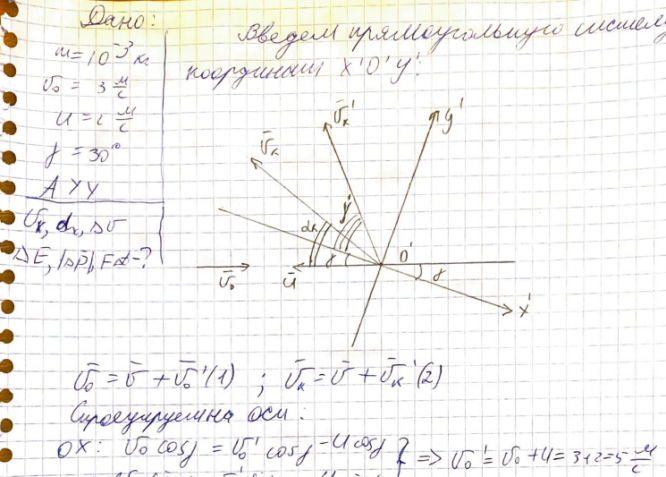 Дано:
m = 10⁻³ кг
υ₀ = 3 м/с
u = 2 м/с
γ = 30°
υк, αк, Δυ
ΔE, |Δp̄|, FΔt - ?
Введем прямоугольную систему
координат X'O'Y'.
ῡк'
y'
ῡк
γ'
αк
γ
O'
ῡ₀
ū
γ
x'
ῡ₀ = ῡ + ῡ₀' (1) ; ῡк = ῡ + ῡк' (2)
Спроецируем на оси:
OX: υ₀ cosγ = υ₀' cosγ - u cosγ } => υ₀' = υ₀ + u = 3+2=5 м/с